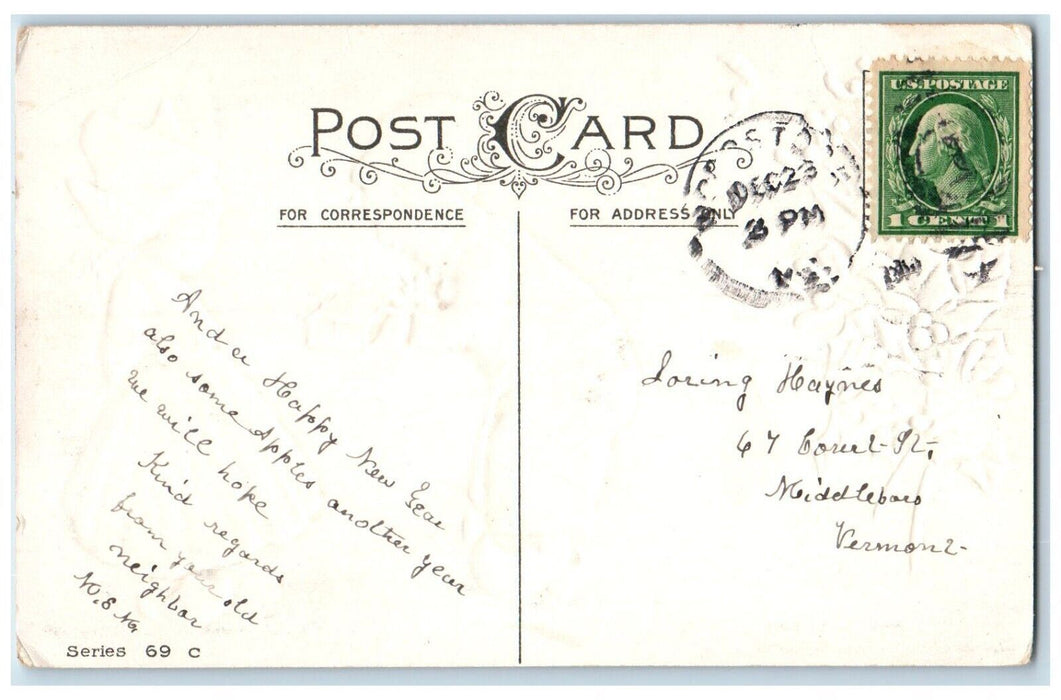 POST CARD
FOR CORRESPONDENCE
FOR ADDRESS ONLY
DEC 23
PM
U.S. POSTAGE
1 CENT 1
And a Happy New Year
also some Apples another year
we will hope
Kind regards
from your old
neighbor
Loring Haynes
67 Court St,
Middleboro
Vermont
Series 69 C